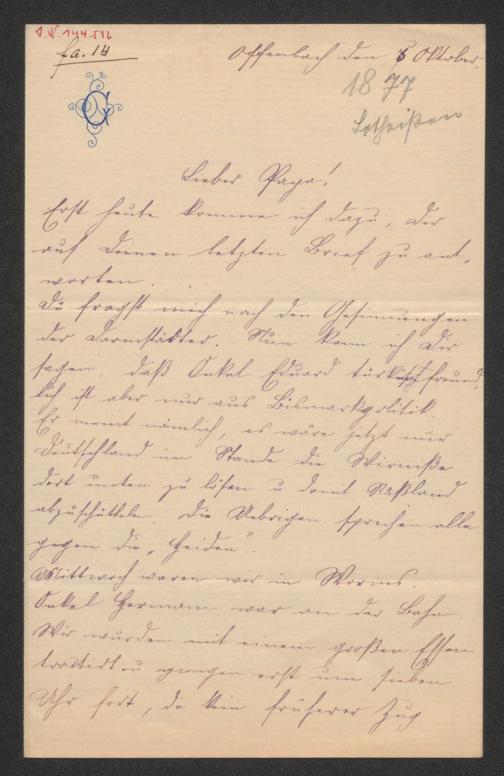 I.N. 144.512
fa. 14
Offenbach den 8 Oktober.
1877
Lotheißen
G
Lieber Papa!
Erst heute komme ich dazu, Dir
auf Deinen letzten Brief zu ant-
worten.
Du fragst mich nach den Gesinnungen
der Darmstädter. Nun kann ich Dir
sagen, daß Onkel Eduard türkischfreund-
lich ist aber nur aus Bismarkpolitik.
Er meint nämlich, es wäre jetzt nur
Deutschland im Stande die Wirniße
dort unten zu lösen u damit Rußland
abzuschütteln. Die Uebrigen sprechen alle
gegen die „Heiden".
Mittwoch waren wir in Worms.
Onkel Hermann war an der Bahn.
Wir wurden mit einem großen Essen
traktirt u gingen erst um sieben
Uhr fort, da kein früherer Zug